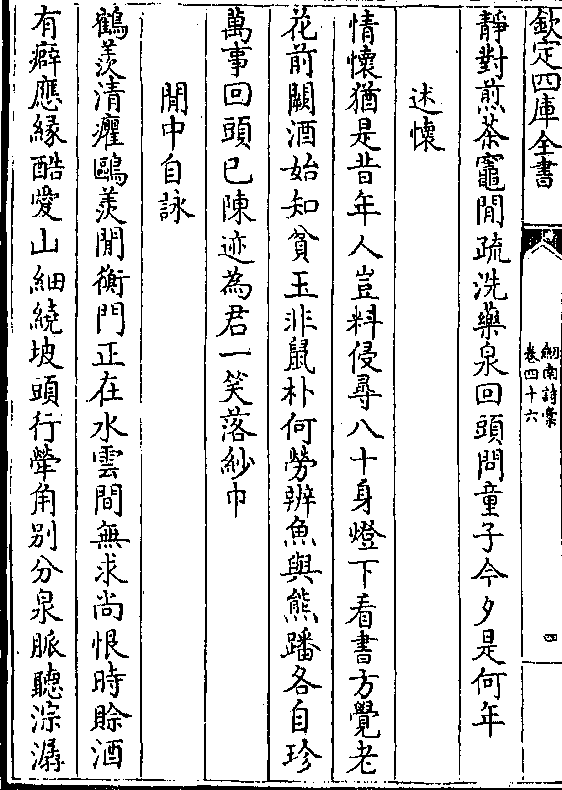 欽定四庫全書
劍南詩槀
卷四十六
四
靜對煎茶竈閒疏洗藥泉回頭問童子今夕是何年
述懷
情懷猶是昔年人豈料侵尋八十身燈下看書方覺老
花前闕酒始知貧玉非鼠朴何勞辨魚與熊蹯各自珍
萬事回頭已陳迹為君一笑落紗巾
閒中自詠
鶴羡清癯鷗羡閒衡門正在水雲間無求尚恨時賒酒
有癖應緣酷愛山細繞坡頭行犖角別分泉脈聽淙潺